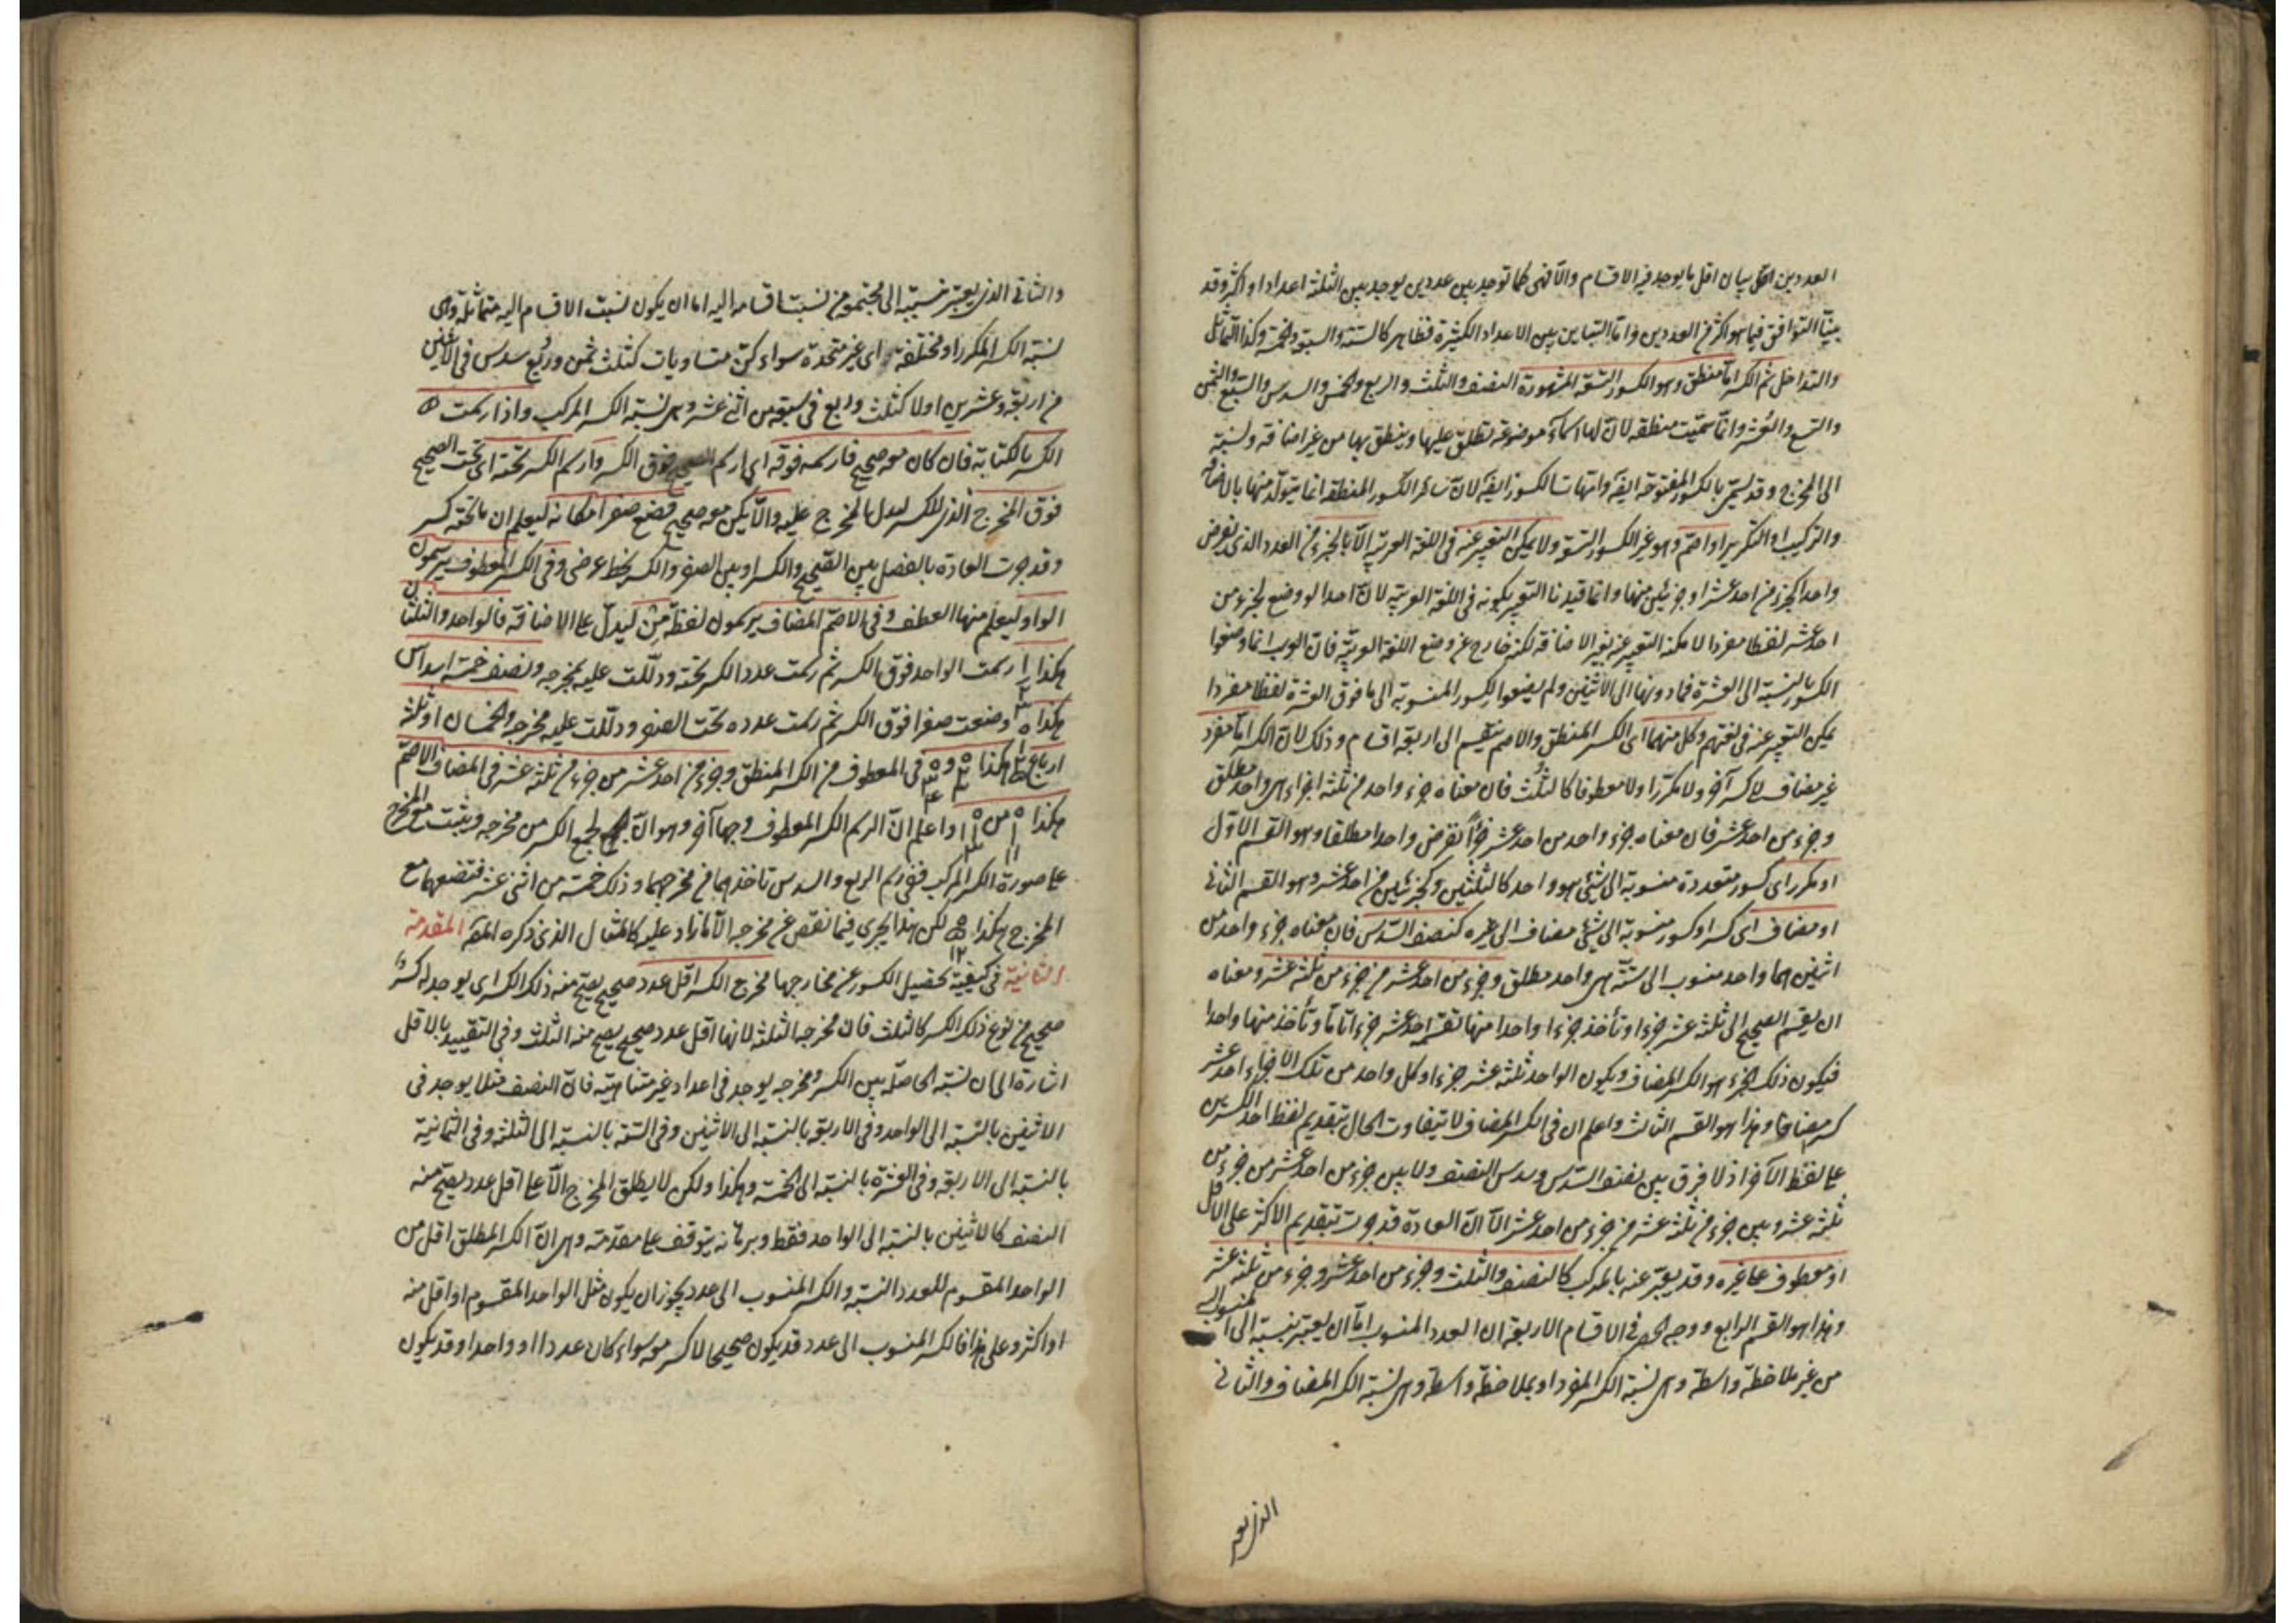 العددين الخ بيان اقل ما يوجد فيه الاقسام والا فهى كما توجد بين عددين يوجد بين الثلثة اعداد او اكثر وقد
بينا التوافق فيما هو اكثر من العددين واما التباين بين الاعداد الكثيرة فظاهر كالستة والسبعة والخمسة وكذا التماثل
والتداخل ثم الكسر اما منطق وهو الكسور التسعة المشهورة النصف والثلث والربع والخمس والسدس والسبع والثمن
والتسع والعشر وانما سميت منطقة لان لها اسماء موضوعة تطلق عليها وينطق بها من غير اضافة ونسبة
الى المخرج وقد تسمى بالكسور المفتوحة ايضا وامهات الكسور ايضا لان سائر الكسور المنطقة انما يتولد منها بالاضافة
والتركيب او التكرير او اصم وهو غير الكسور التسعة ولا يمكن التعبير عنه فى اللغة العربية الا بالجزء من العدد الذى يفرض
واحدا كجزء من احد عشر او جزئين منها وانما قيدنا التعبير بكونه فى اللغة العربية لان احدا لو وضع لجزء من
احد عشر لفظا مفردا لا مكنه التعبير عنه بغير الاضافة لكنه خارج عن وضع اللغة العربية فان العرب انما وضعوا
الكسور بالنسبة الى العشرة فما دونها الى الاثنين ولم يضعوا لكسور المنسوبة الى ما فوق العشرة لفظا مفردا
يمكن التعبير عنه فى لغتهم وكل منهما اى الكسر المنطق والاصم ينقسم الى اربعة اقسام وذلك لان الكسر اما مفرد
غير مضاف لكسر آخر ولا مكررا ولا معطوفا كالثلث فان معناه جزء واحد من ثلثة اجزاء هى واحد مطلق
وجزء من احد عشر فان معناه جزء واحد من احد عشر جزءا تفرض واحدا مطلقا وهو القسم الاول
او مكرر اى كسور متعددة منسوبة الى شئ هو واحد كالثلثين وكجزئين من احد عشر وهو القسم الثانى
او مضاف اى كسر او كسور منسوبة الى شئ مضاف الى غيره كنصف السدس فان معناه جزء واحد من
اثنين هما واحد منسوب الى ستة هى واحد مطلق وجزء من احد عشر من جزء من ثلثة عشر ومعناه
ان يقسم الصحيح الى ثلثة عشر جزءا وتأخذ جزءا واحدا منها تقسمه احد عشر جزءا ثانيا وتأخذ منها واحدا
فيكون ذلك الجزء هو الكسر المضاف ويكون الواحد ثلثة عشر جزءا وكل واحد من تلك الاجزاء احد عشر
كسر مضافا وهذا هو القسم الثالث واعلم ان فى الكسر المضاف لا يتفاوت الحال بتقديم لفظ احد الكسرين
على لفظ الآخر اذ لا فرق بين نصف السدس وسدس النصف ولا بين جزء من احد عشر من جزء من
ثلثة عشر وبين جزء من ثلثة عشر من جزء من احد عشر الا ان العادة قد جرت بتقديم الاكثر على الاقل
او معطوف على غيره وقد يعبر عنه بالمركب كالنصف والثلث وجزء من احد عشر وجزء من ثلثة عشر
وهذا هو القسم الرابع ووجه الحصر فى الاقسام الاربعة ان العدد المنسوب اما ان يعتبر نسبته الى المنسوب اليه
من غير ملاحظة واسطة وهى نسبة الكسر المفرد او بملاحظة واسطة وهى نسبة الكسر المضاف والثانى
الذى يعتبر
والثانى الذى يعتبر نسبته الى مجتمعة من نسبت اقسامه اليه اما ان يكون نسبت الاقسام اليه متماثلة وهى
نسبة الكسر المكرر او مختلفة اى غير متحدة سواء كن متساويات كثلث ثمن وربع سدس فى الاثنين
من اربعة وعشرين اولا كثلث وربع فى سبعة من اثنى عشر وهى نسبة الكسر المركب واذا رسمت
الكسر بالكتابة فان كان معه صحيح فارسمه فوقه اى ارسم الصحيح فوق الكسر وارسم الكسر تحته اى تحت الصحيح
فوق المخرج الذى للكسر ليدل بالمخرج عليه والا يكن معه صحيح فضع صفرا مكانه ليعلم ان ما تحته كسر
وقد جرت العادة بالفصل بين الصحيح والكسر او بين الصفر والكسر بخط عرضى وفى الكسر المعطوف يرسمون
الواو ليعلم منها العطف وفى الاصم المضاف يرسمون لفظة من ليدل على الاضافة فالواحد والثلثان
هكذا ١ ٢ ٣ رسمت الواحد فوق الكسر ثم رسمت عدد الكسر تحته ودللت عليه بمخرجه ونصف خمسة اسداس
هكذا وضعت صفرا فوق الكسر ثم رسمت عدده تحت الصفر ودللت عليه بمخرجه والخمسان او ثلثة
ارباع هكذا فى المعطوف من الكسر المنطق وجزء من احد عشر من جزء من ثلثة عشر فى المضاف الاصم
هكذا من واعلم ان الرسم الكسر المعطوف وجها آخر وهو ان يجمع الكسر من مخرجه ويثبت مع المخرج
على صورة الكسر المركب ففى رسم الربع والسدس تأخذهما من مخرجهما وذلك خمسة من اثنى عشر فتضعهما مع
المخرج هكذا ٥ ١٢ لكن هذا يجرى فيما نقص عن مخرجه لا ما زاد عليه كالمثال الذى ذكره المص المقدمة
الثانية فى كيفية تحصيل الكسور عن مخارجها مخرج الكسر اقل عدد صحيح يصح منه ذلك الكسر اى يوجد له كسر
صحيح من نوع ذلك الكسر كالثلث فان مخرجه الثلثة لانها اقل عدد صحيح يصح منه الثلث وفى التقييد بالاقل
اشارة الى ان نسبة الحاصلة بين الكسر ومخرجه يوجد فى اعداد غير متناهية فان النصف مثلا يوجد فى
الاثنين بالنسبة الى الواحد وفى الاربعة بالنسبة الى الاثنين وفى الستة بالنسبة الى الثلثة وفى الثمانية
بالنسبة الى الاربعة وفى العشرة بالنسبة الى الخمسة وهكذا ولكن لا يطلق المخرج الا على اقل عدد يصح منه
النصف كالاثنين بالنسبة الى الواحد فقط وبرهانه يتوقف على مقدمة وهى ان الكسر المطلق اقل من
الواحد المقسوم للعدد النسبة والكسر المنسوب الى عدد يجوز ان يكون مثل الواحد المقسوم او اقل منه
او اكثر وعلى هذا فالكسر المنسوب الى عدد قد يكون صحيحا لا كسر معه سواء كان عددا او واحدا وقد يكون